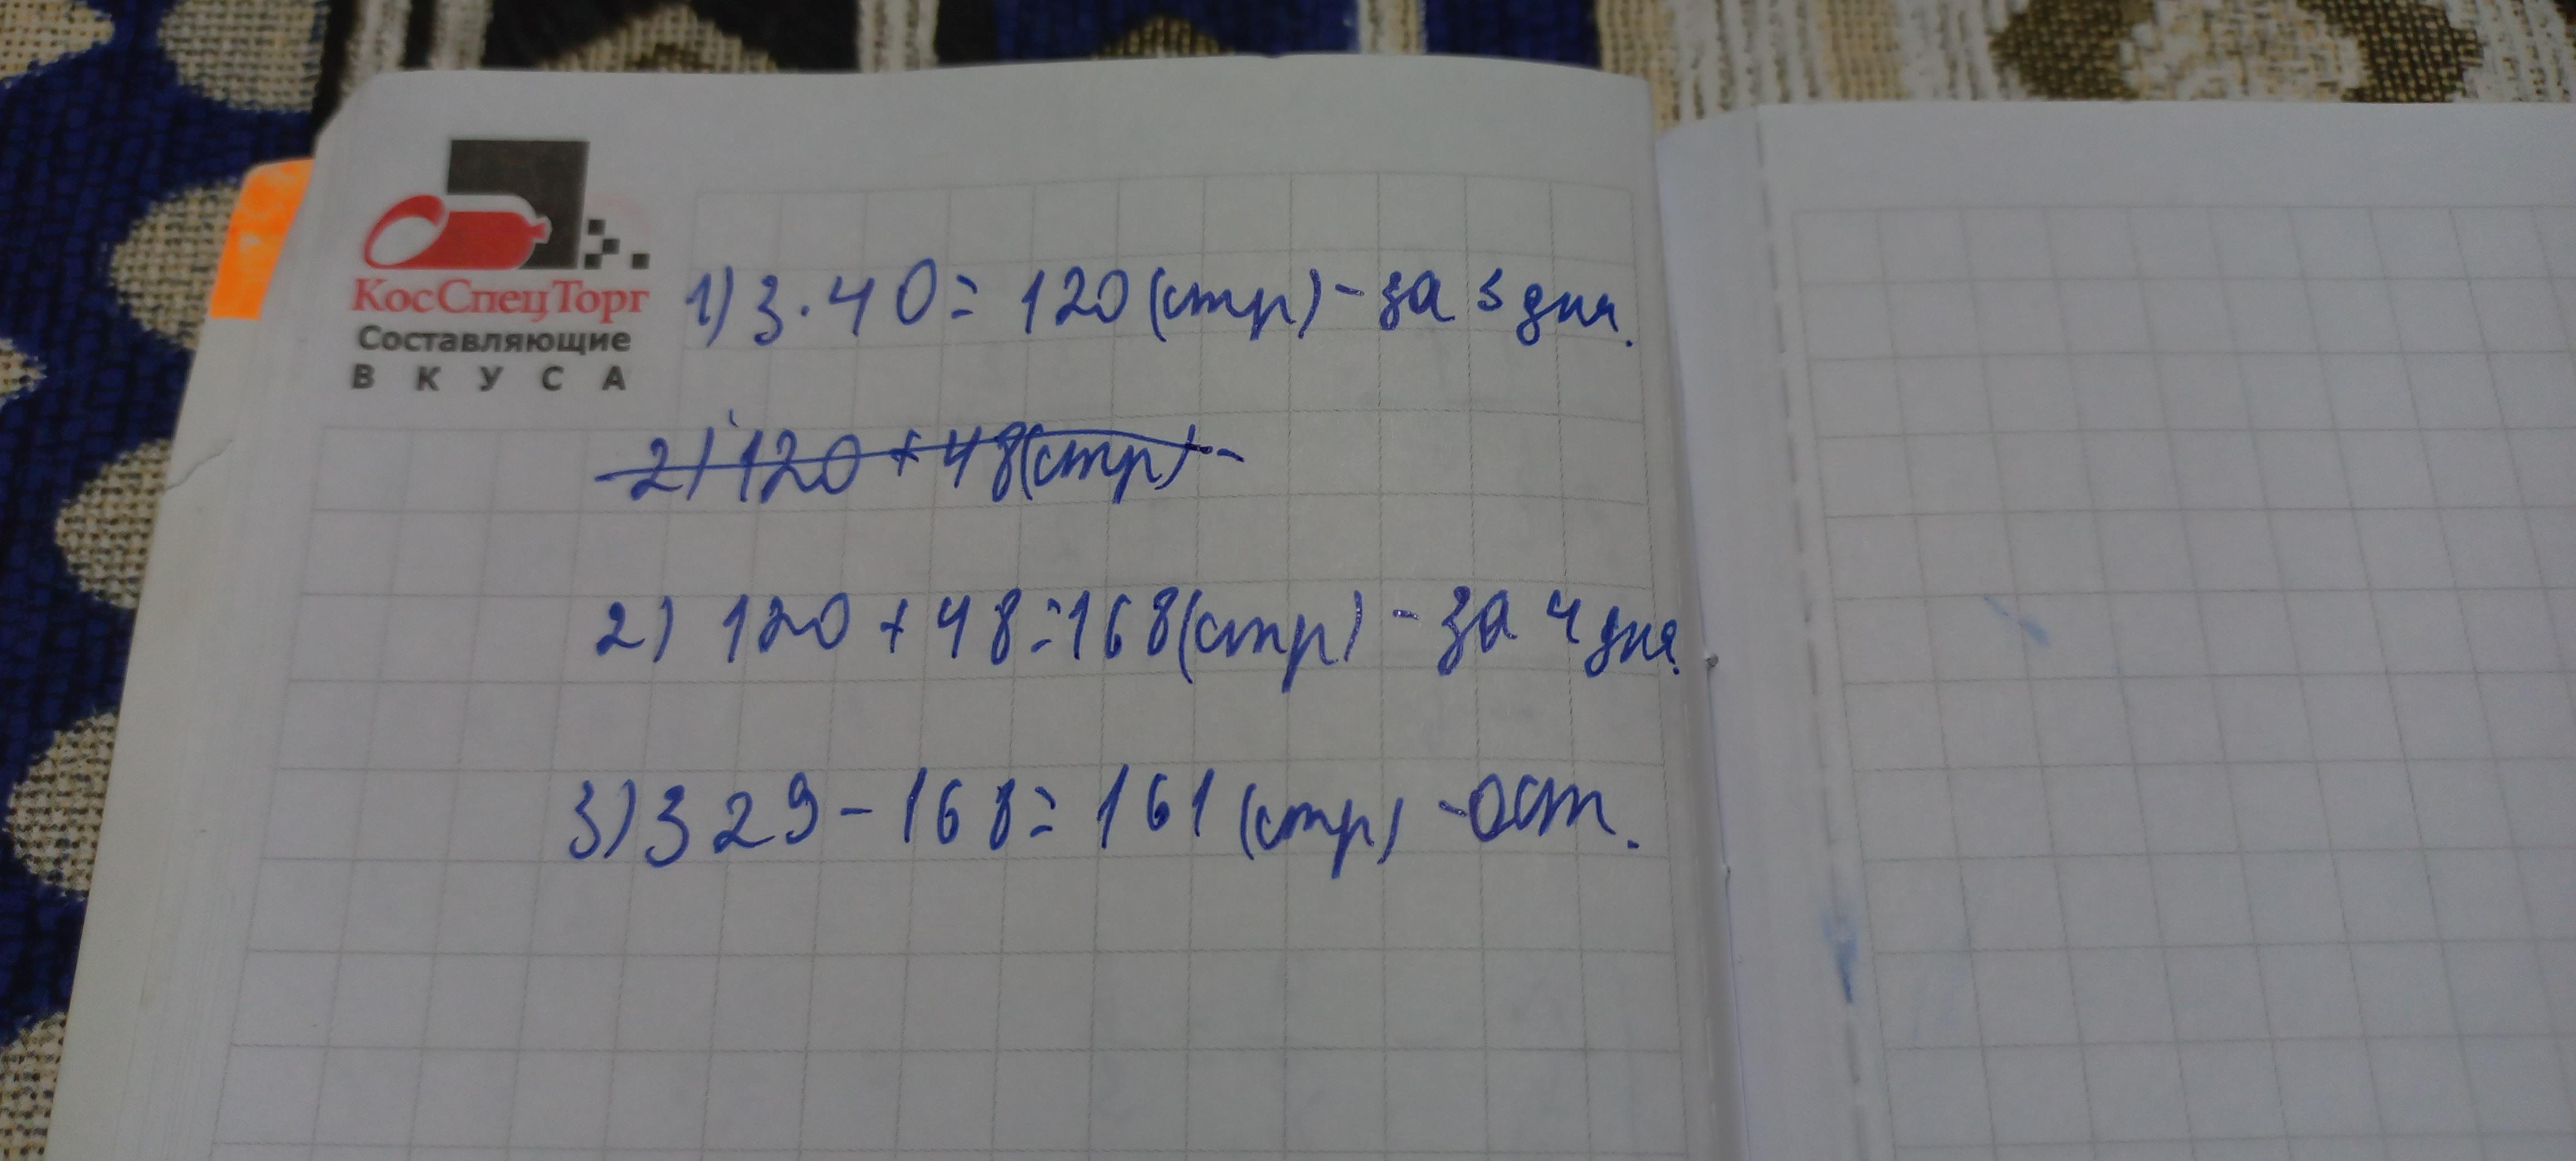 КосСпецТорг
Составляющие
ВКУСА
1) 3 · 40 = 120 (стр) - за 3 дня.
2) 120 + 48 (стр) -
2) 120 + 48 = 168 (стр) - за 4 дня.
3) 329 - 168 = 161 (стр) - ост.